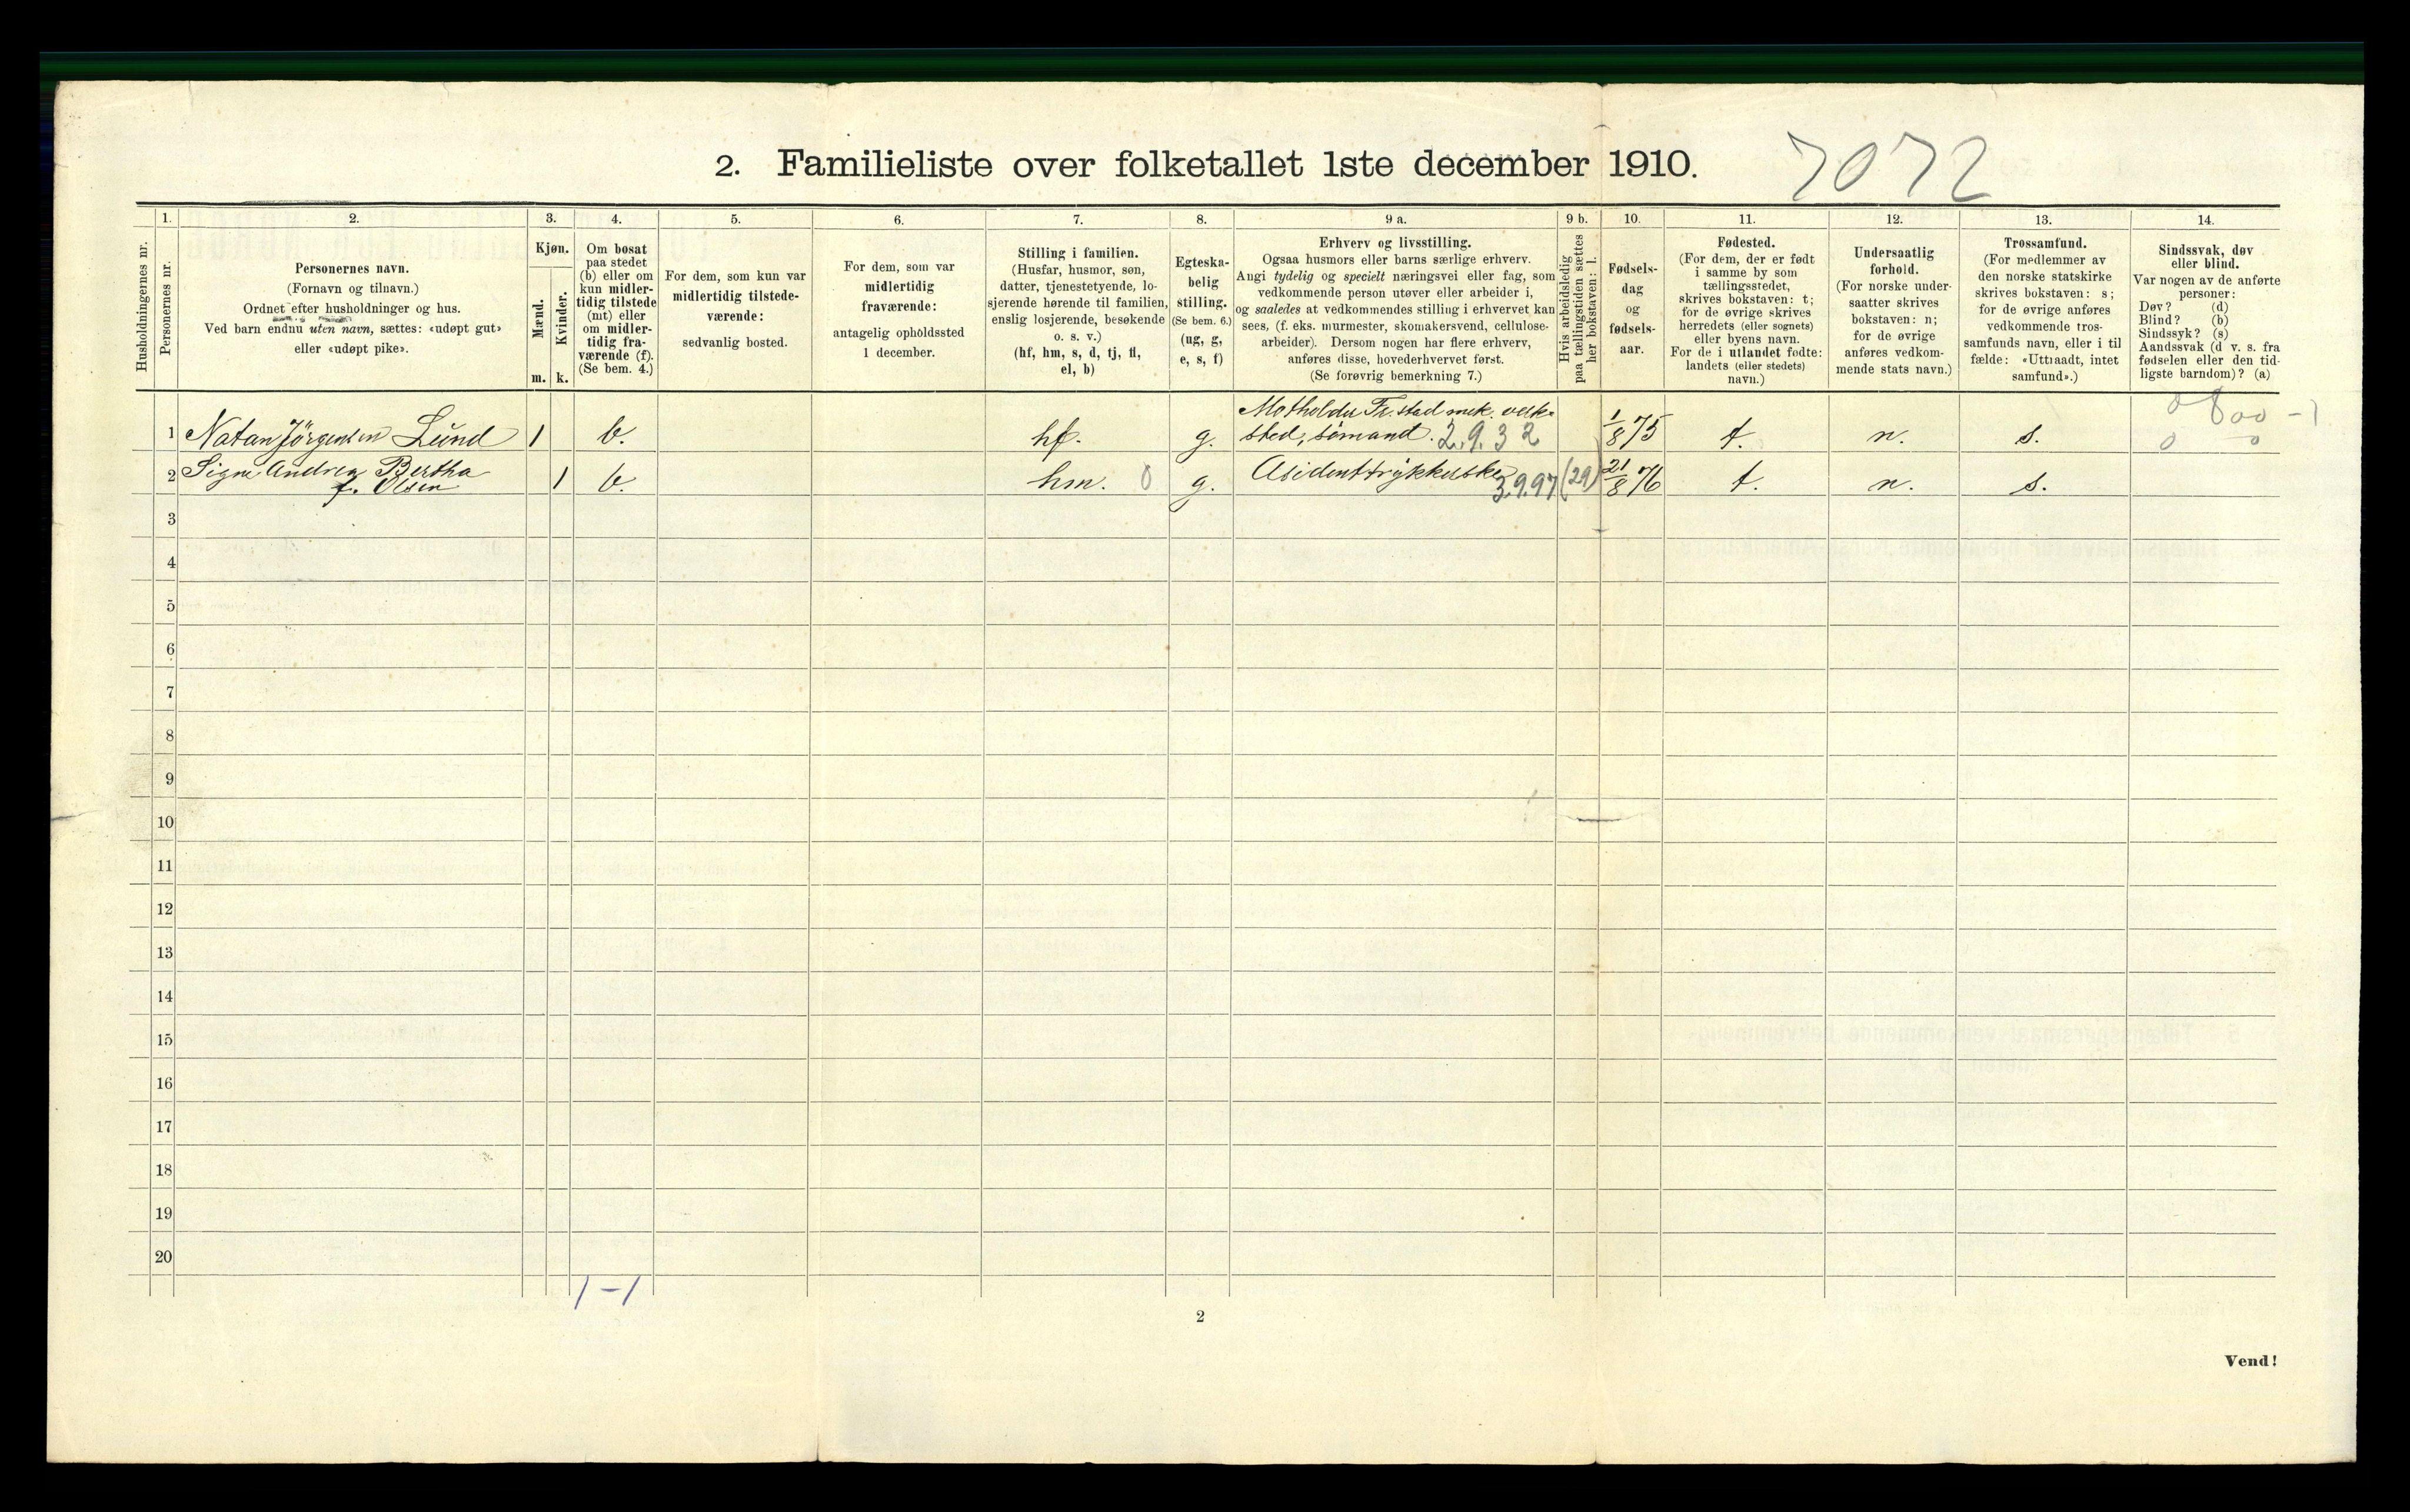 2. Familieliste over folketallet 1ste december 1910.
7072
Husholdningernes nr.
1.
Personernes nr.
2.
Personernes navn.
(Fornavn og tilnavn.)
Ordnet efter husholdninger og hus.
Ved barn endnu uten navn, sættes: «udøpt gut»
eller «udøpt pike».
3.
Kjøn.
Mænd.
Kvinder.
m. k.
4.
Om bosat
paa stedet
(b) eller om
kun midler-
tidig tilstede
(mt) eller
om midler-
tidig fra-
værende (f).
(Se bem. 4.)
5.
For dem, som kun var
midlertidig tilstede-
værende:
sedvanlig bosted.
6.
For dem, som var
midlertidig
fraværende:
antagelig opholdssted
1 december.
7.
Stilling i familien.
(Husfar, husmor, søn,
datter, tjenestetyende, lo-
sjerende hørende til familien,
enslig losjerende, besøkende
o. s. v.)
(hf, hm, s, d, tj, fl,
el, b)
8.
Egteska-
belig
stilling.
(Se bem. 6.)
(ug, g,
e, s, f)
9 a.
Erhverv og livsstilling.
Ogsaa husmors eller barns særlige erhverv.
Angi tydelig og specielt næringsvei eller fag, som
vedkommende person utøver eller arbeider i,
og saaledes at vedkommendes stilling i erhvervet kan
sees, (f. eks. murmester, skomakersvend, cellulose-
arbeider). Dersom nogen har flere erhverv,
anføres disse, hovederhvervet først.
(Se forøvrig bemerkning 7.)
9 b.
Hvis arbeidsledig
paa tællingstiden sættes
her bokstaven: l.
10.
Fødsels-
dag
og
fødsels-
aar.
11.
Fødested.
(For dem, der er født
i samme by som
tællingsstedet,
skrives bokstaven: t;
for de øvrige skrives
herredets (eller sognets)
eller byens navn.
For de i utlandet fødte:
landets (eller stedets)
navn.)
12.
Undersaatlig
forhold.
(For norske under-
saatter skrives
bokstaven: n;
for de øvrige
anføres vedkom-
mende stats navn.)
13.
Trossamfund.
(For medlemmer av
den norske statskirke
skrives bokstaven: s;
for de øvrige anføres
vedkommende tros-
samfunds navn, eller i til
fælde: «Uttraadt, intet
samfund».)
14.
Sindssvak, døv
eller blind.
Var nogen av de anførte
personer:
Døv? (d)
Blind? (b)
Sindssyk? (s)
Aandssvak (d v. s. fra
fødselen eller den tid-
ligste barndom)? (a)
1 Natan Jörgensen Lund 1 b. hf. g. Motholder Fr.stad mek. verk-
sted, sömand. 2.9.32 1/8 75 t. n. s. 0 0
2 Signe Andrea Bertha
f. Olsen 1 b. hm. 0 g. 3.9.97 (29) 21/8 76 t. n. s.
3
4
5
6
7
8
9
10
11
12
13
14
15
16
17
18
19
20
1 - 1
2
Vend!